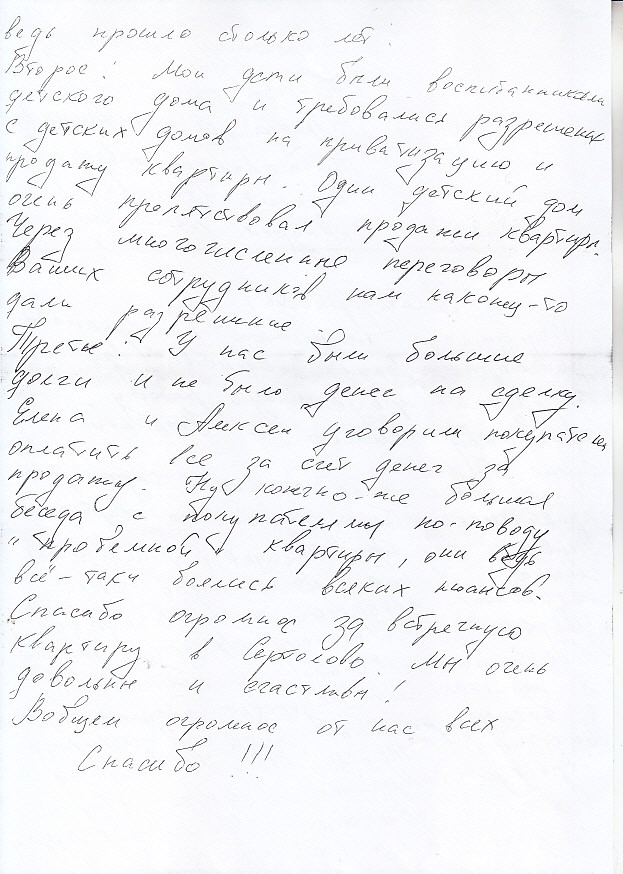 ведь прошло столько лет.
Второе! Мои дети были воспитанниками
детского дома и требовались разрешения
с детских домов на приватизацию и
продажу квартиры. Один детский дом
очень препятствовал продажи квартиры.
Через многочисленные переговоры
Ваших сотрудников нам наконец-то
дали разрешение.
Третье! У нас были большие
долги и не было денег на сделку.
Елена и Алексей уговорили покупателей
оплатить все за счет денег за
продажу. Ну конечно-же большая
беседа с покупателями по-поводу
"пробемной" квартиры, они ведь
всё-таки боялись всяких нюансов.
Спасибо огромное за встречную
квартиру в Сертолово. Мы очень
довольны и счастливы!
Вобщем огромное от нас всех
Спасибо !!!